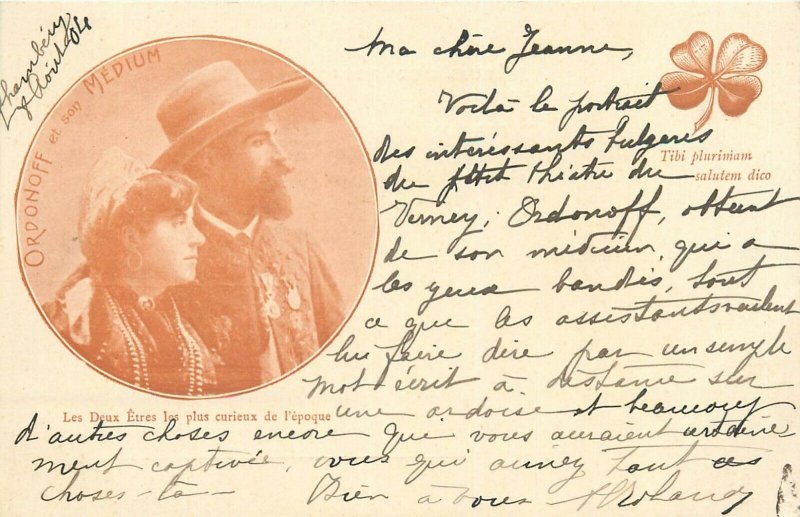 Chambéry
8 Août 04
ORDONOFF et son MÉDIUM
Ma chère Jeanne,
Voilà le portrait
des intéressants Bulgares
du petit théâtre du
Verney, Ordonoff, obtient
de son médium, qui a
les yeux bandés, tout
ce que les assistants veulent
lui faire dire par un simple
mot écrit à distance sur
une ardoise et beaucoup
d'autres choses encore qui vous auraient
ment captivée, vous qui aimez tout ces
choses-là - Bien à vous
Tibi plurimam
salutem dico
Les Deux Êtres les plus curieux de l'époque